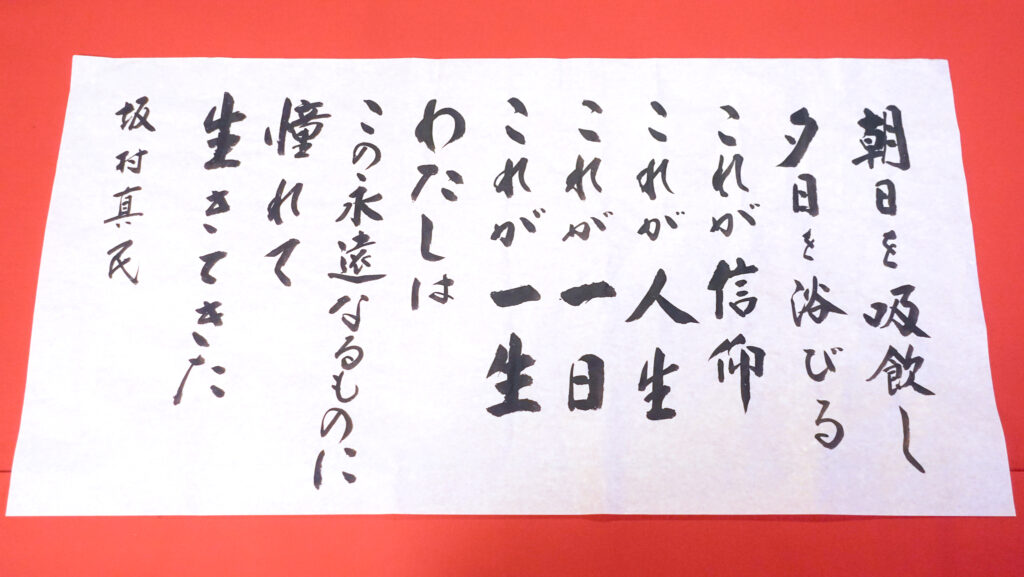 朝日を吸飲し
夕日を浴びる
これが信仰
これが人生
これが一日
これが一生
わたしは
この永遠なるものに
憧れて
生きてきた
坂村真民